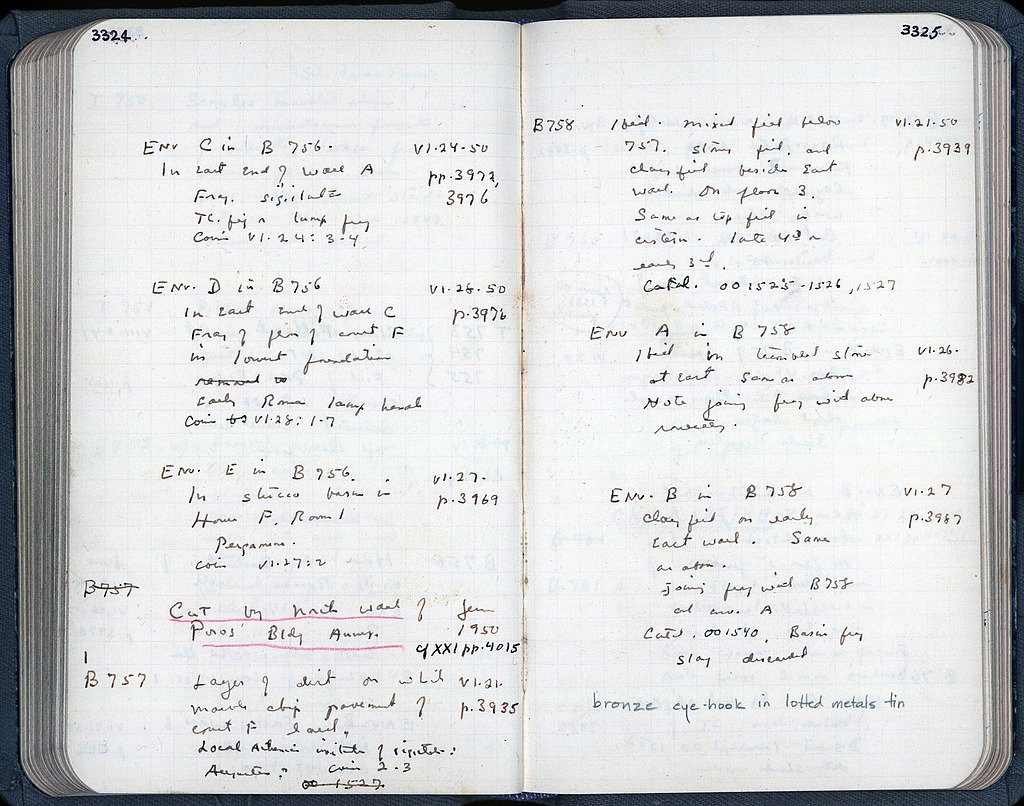 3324
Env C in B 756. VI-24-50
In East End of Wall A pp.3972,
Frag. sigillata 3976
TC. fig & lamp frag
Coins VI.24: 3-4
Env. D in B 756 VI-28-50
In East End of Wall C p.3976
Frag of of court F
in lowest foundation
Early Roman lamp handle
Coins VI.28: 1-7
Env. E in B 756. VI-27-
In stucco basin in p.3969
House F, Room 1
Pergamene.
coin VI.27:2
B757
Cut by North Wall of June
Poros Bldg Annex. 1950
cf XXI pp.4015
1
B 757 Layer of dirt on which VI-21.
marble chip pavement of p.3935
court F laid.
Local imitate of sigillata:
Augustan? coins 2-3
3325
B758 Ibid. mixed fill below VI-21-50
757. stones fill. and p.3939
clay fill beside East
wall. On floor 3.
Same as top fill in
cistern. late 4th or
early 3rd.
Catd. 001525-1526, 1527
Env A in B 758
Ibid in tumbled stones VI-26.
at East. Same as above p.3982
Note joining frag with above
Env. B in B 758 VI-27
Clay fill on early p.3987
East wall. Same
as above.
Joining frag with B758
and env. A
Catd. 001540. Basin frag
Slag discarded
bronze eye-hook in lotted metals tin